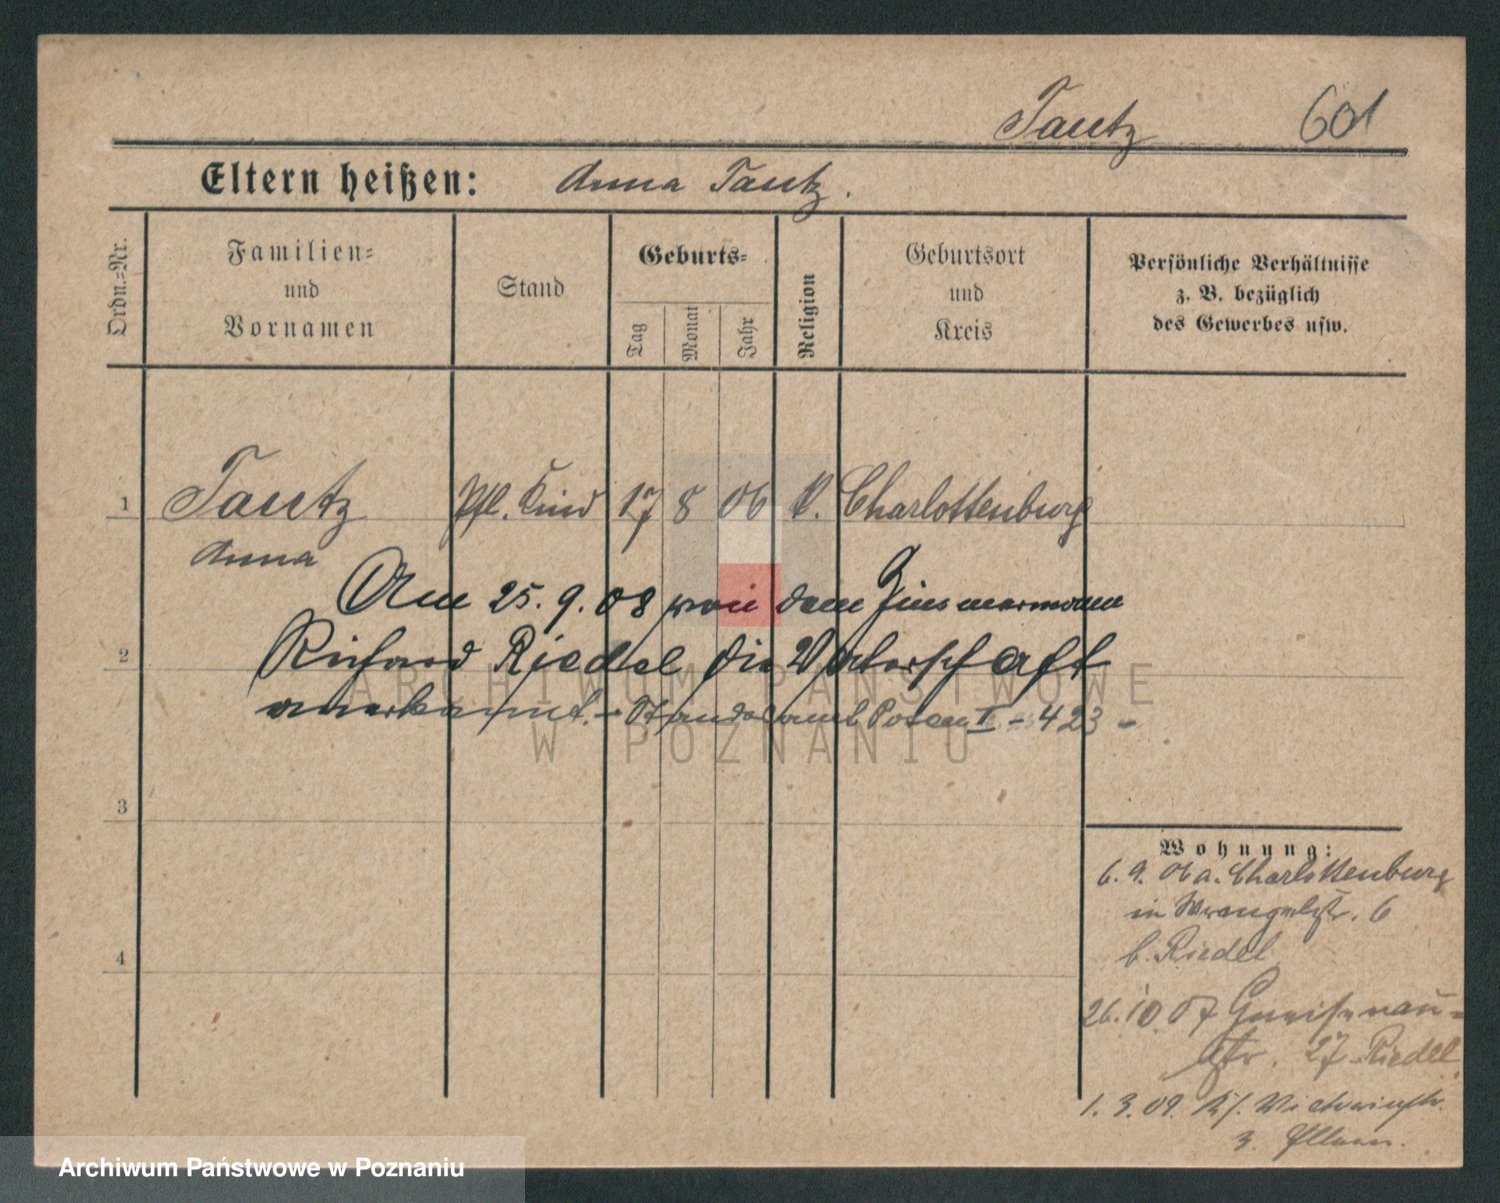 Tautz 601
Eltern heißen: Anna Tautz.
Ordn.-Nr.
Familien-
und
Vornamen
Stand
Geburts-
Tag
Monat
Jahr
Religion
Geburtsort
und
Kreis
Persönliche Verhältnisse
z. B. bezüglich
des Gewerbes usw.
1 Tautz Pfl. Kind 17 8 06 k. Charlottenburg
Anna
Am 25. 9. 08 von dem Zimmermann
2 Richard Riedel die Vaterschaft
anerkannt. – Standesamt Posen II – 423 –
ARCHIWUM PAŃSTWOWE
W POZNANIU
3
4
Wohnung:
6. 9. 06 a. Charlottenburg
in Wrangelstr. 6
b. Riedel
26. 10. 07 Gneisenau-
str. 27 Riedel
1. 3. 09. Victoriastr.
z. Eltern.
Archiwum Państwowe w Poznaniu